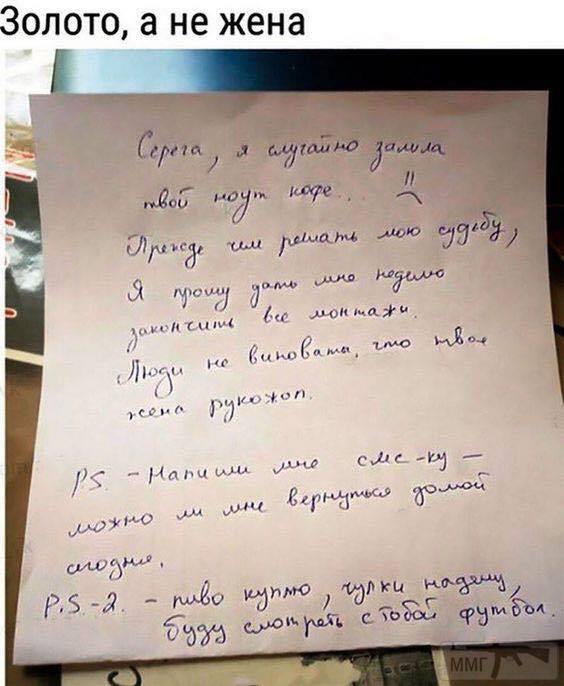 Золото, а не жена
Серега, я случайно залила
твой ноут кофе...
Прежде чем решать мою судьбу,
Я прошу дать мне неделю
закончить все монтажи.
Люди не виноваты, что твоя
жена рукожоп.
P.S. - Напиши мне смс-ку -
можно ли мне вернуться домой
сегодня.
P.S.-2. - пиво куплю, чулки надену,
буду смотреть с тобой футбол.
ММГ